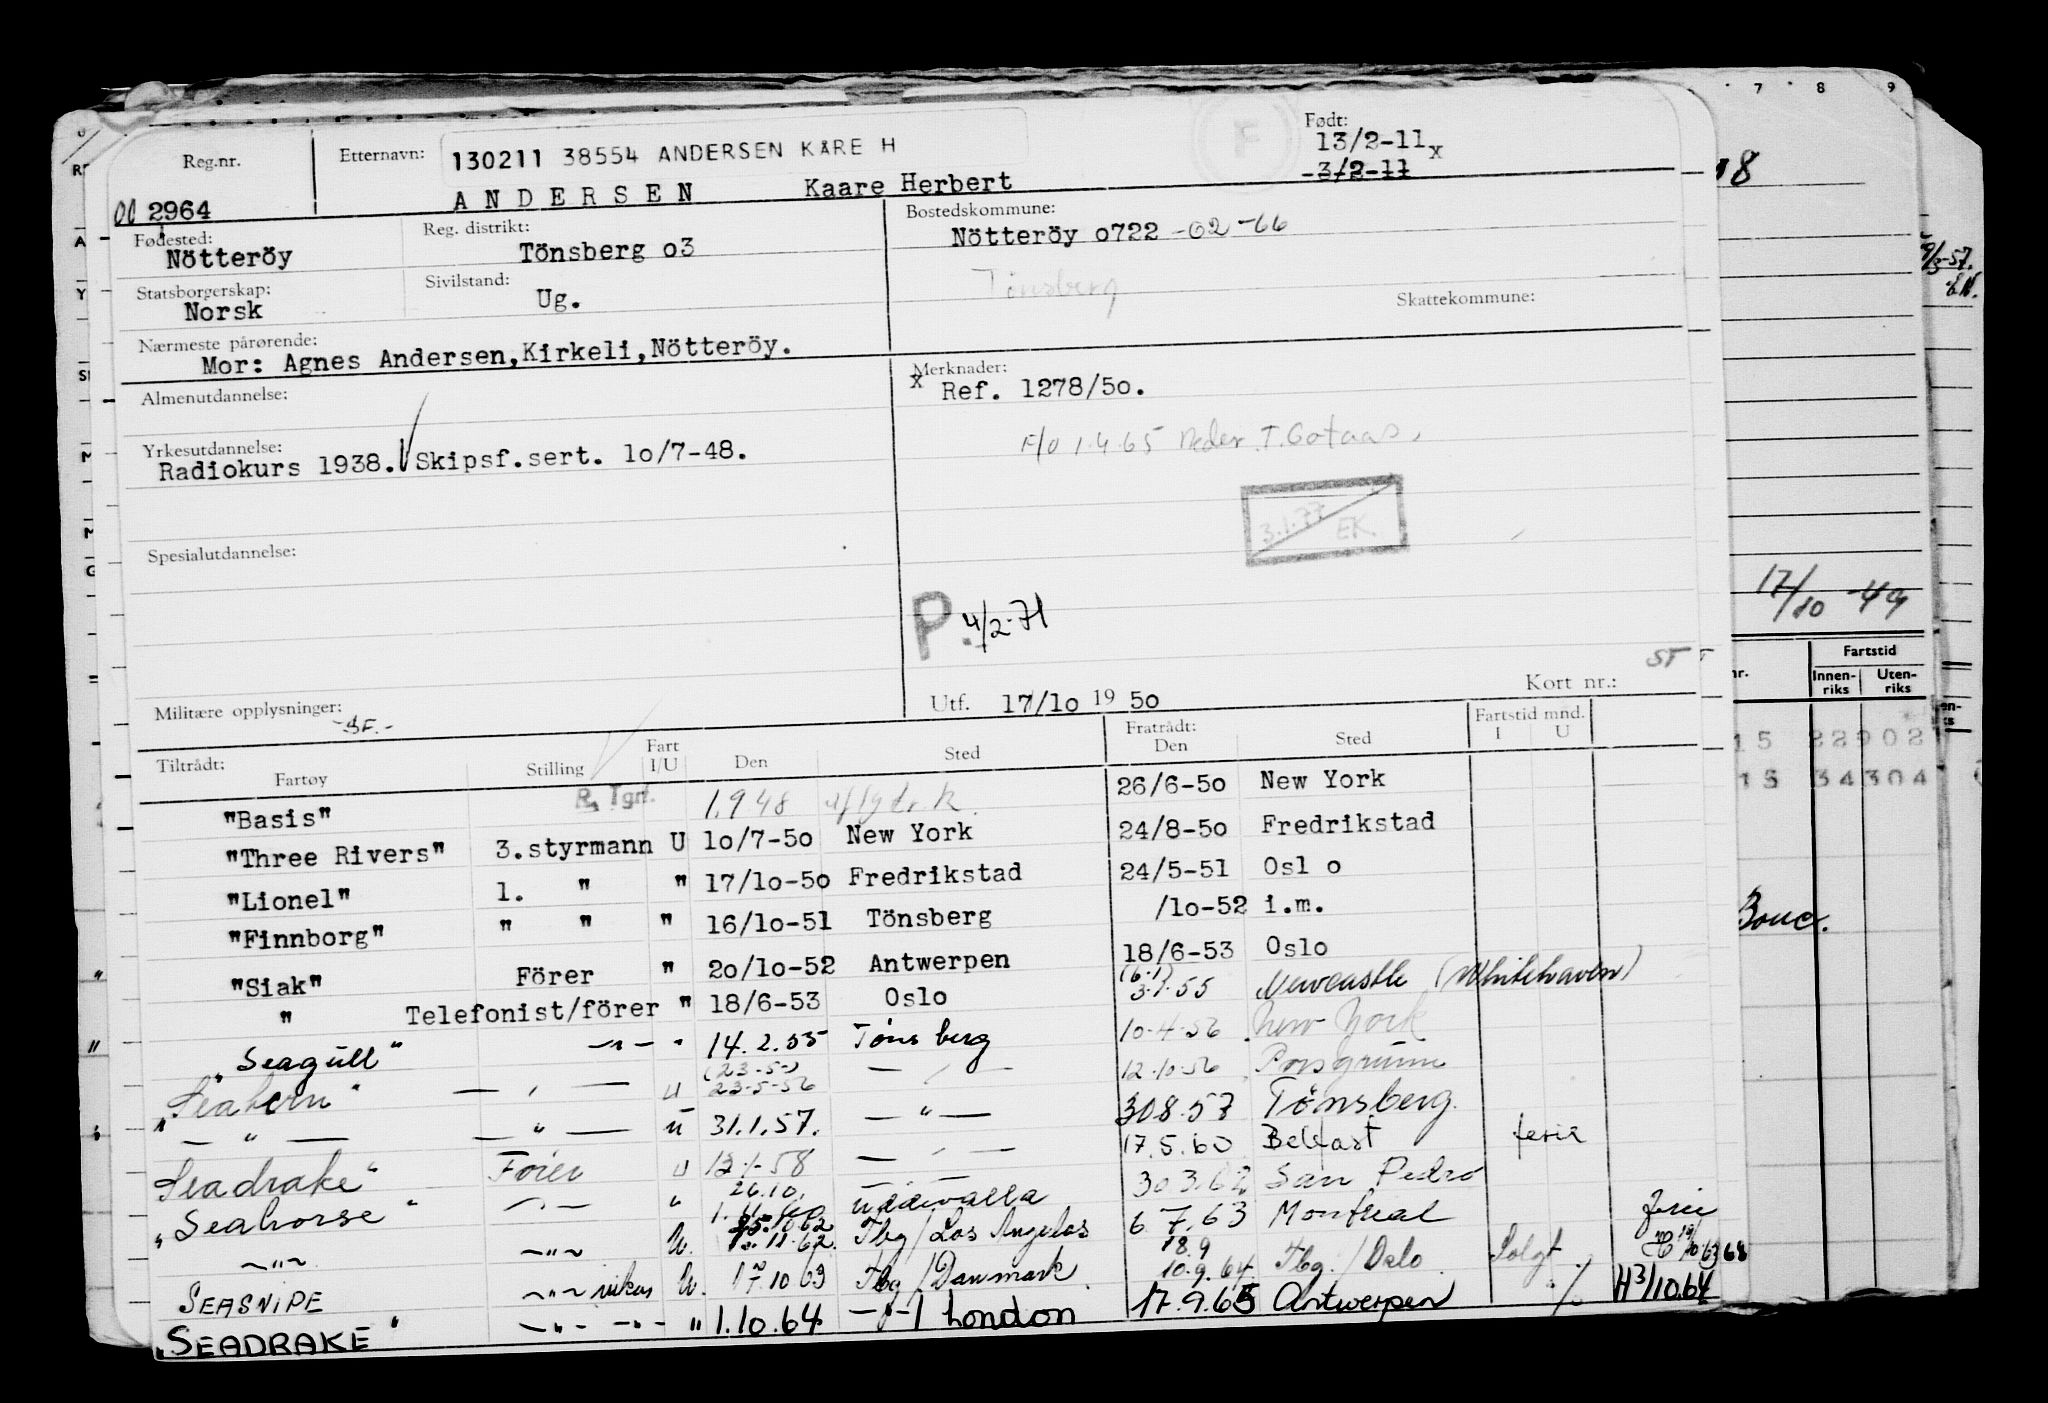 Reg.nr. Etternavn: 130211 38554 ANDERSEN KÅRE H Født: 13/2-11x
-3/2-11
00 2964 ANDERSEN Kaare Herbert
Fødested: Nötteröy Reg. distrikt: Tönsberg o3 Bostedskommune: Nötteröy o722 -02-66
Statsborgerskap: Norsk Sivilstand: Ug. Tønsberg Skattekommune:
Nærmeste pårørende: Mor: Agnes Andersen,Kirkeli,Nötteröy.
Almenutdannelse: Merknader: x Ref. 1278/5o.
Yrkesutdannelse: Radiokurs 1938. Skipsf.sert. 1o/7-48. F/O 1.4.65 Reder T. Gotaas.
3.1.77 EK.
Spesialutdannelse:
P. 4/2-71
ST
Militære opplysninger: -SF.- Utf. 17/1o 19 5o Kort nr.:
Tiltrådt: Fartøy Stilling Fart I/U Den Sted Fratrådt: Den Sted Fartstid mnd. I U
"Basis" R. Tgrf. 1.9 48 26/6-5o New York
"Three Rivers" 3.styrmann U 1o/7-5o New York 24/8-5o Fredrikstad
"Lionel" 1. " " 17/1o-5o Fredrikstad 24/5-51 Osl o
"Finnborg" " " " 16/1o-51 Tönsberg /1o-52 i.m.
"Siak" Förer " 2o/1o-52 Antwerpen 18/6-53 Oslo
" Telefonist/förer " 18/6-53 Oslo (6-1) 3.1.55 Newcastle (Whitehaven)
"Seagull" —"— " 14.2.55 Tønsberg 10.4.56 New York
"Seatern" — " — u (23-5-) 23-5-56 — " — 12.10.56 Porsgrunn
— " — — " — u 31.1.57. — " — 30.8.57 Tønsberg.
"Seadrake" Fører u 12.1.58 — " — 17.5.60 Belfast ferie
"Seahorse" —"— " 26.10. 1.11.60 Uddevalla 30.3.62 San Pedro
—"— —"— U. 25.10.62 11.62. Tbg/Los Angelos 6.7.63 Montreal Ferie
SEASNIPE —"— vikar U. 17.10 63 Tbg/Danmark 18.9 10.9.64 Tbg./Oslo Solgt
"SEADRAKE" —"— —"— " 1.10.64 —"—/ London 17.9.65 Antwerpen ./. H3/10.64
7 8 9
18
9/3-57.
17/10 -49
Fartstid
nr. Innen-riks Uten-riks
15 22902
15 34304
Bouc.